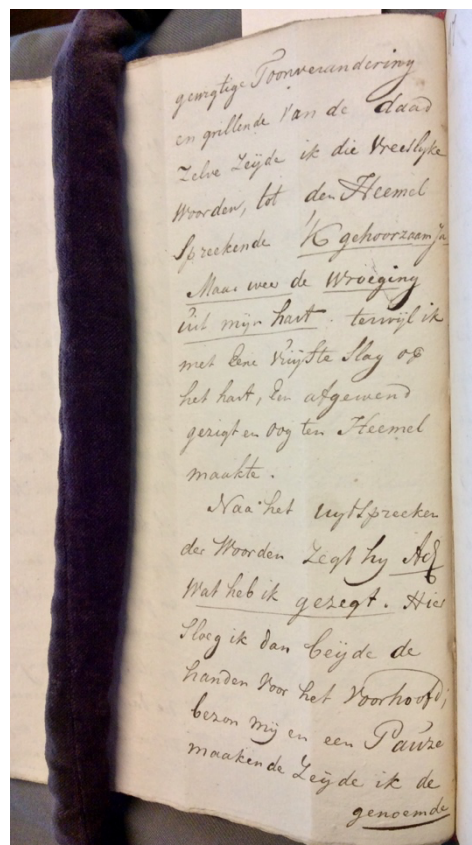 gewigtige Toonverandering
en grillende van de daad
Zelve Zeijde ik die Vreeslyke
Woorden, tot den Heemel
Spreekende 'K gehoorzaam Ja
Maar weer de Wroeging
Uit mijn hart. terwijl ik
met Eene Vuijste Slag op
het hart, En afgewend
gezigt en oog ten Heemel
maakte.
Naa het uytspreeken
der Woorden Zegt hy Ach
Wat heb ik gezegt. Hier
Sloeg ik dan beijde de
handen voor het Voorhoofd;
bezon mij en een Pauze
maakende Zeijde ik de
genoemde